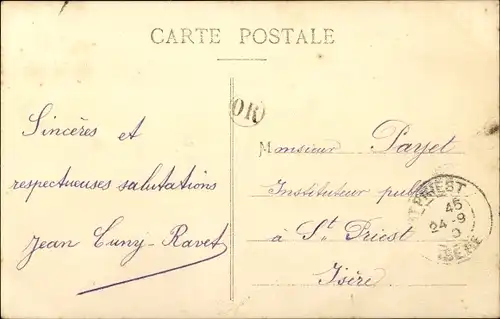 CARTE POSTALE
OR
Sincères et
respectueuses salutations
Jean Cuny-Ravet
Monsieur Payet
Instituteur public
à St Priest
Isère
ST PRIEST
45
24 -9
ISERE